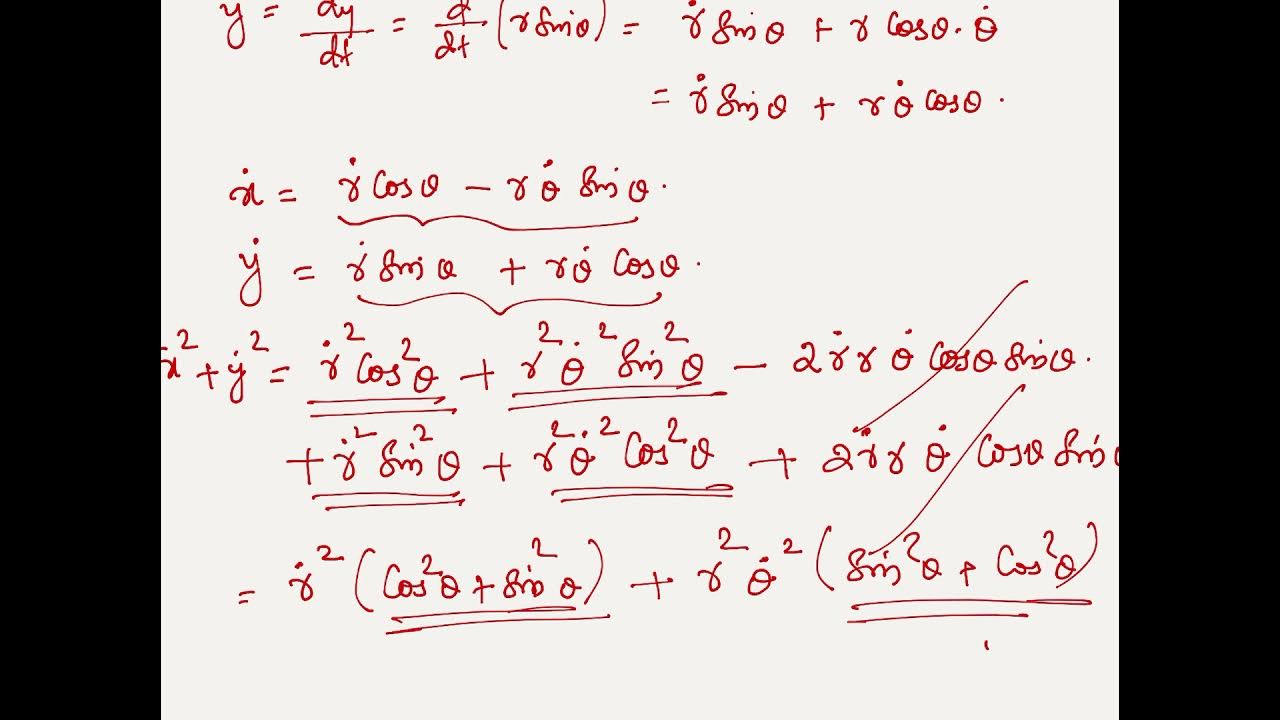 ẏ = dy/dt = d/dt (r sinθ) = ṙ sinθ + r cosθ · θ̇
= ṙ sinθ + r θ̇ cosθ .
ẋ = ṙ cosθ − r θ̇ sinθ .
ẏ = ṙ sinθ + r θ̇ cosθ .
ẋ² + ẏ² = ṙ² cos²θ + r² θ̇² sin²θ − 2 ṙ r θ̇ cosθ sinθ .
+ ṙ² sin²θ + r² θ̇² cos²θ + 2 ṙ r θ̇ cosθ sinθ
= ṙ² (cos²θ + sin²θ) + r² θ̇² (sin²θ + cos²θ)